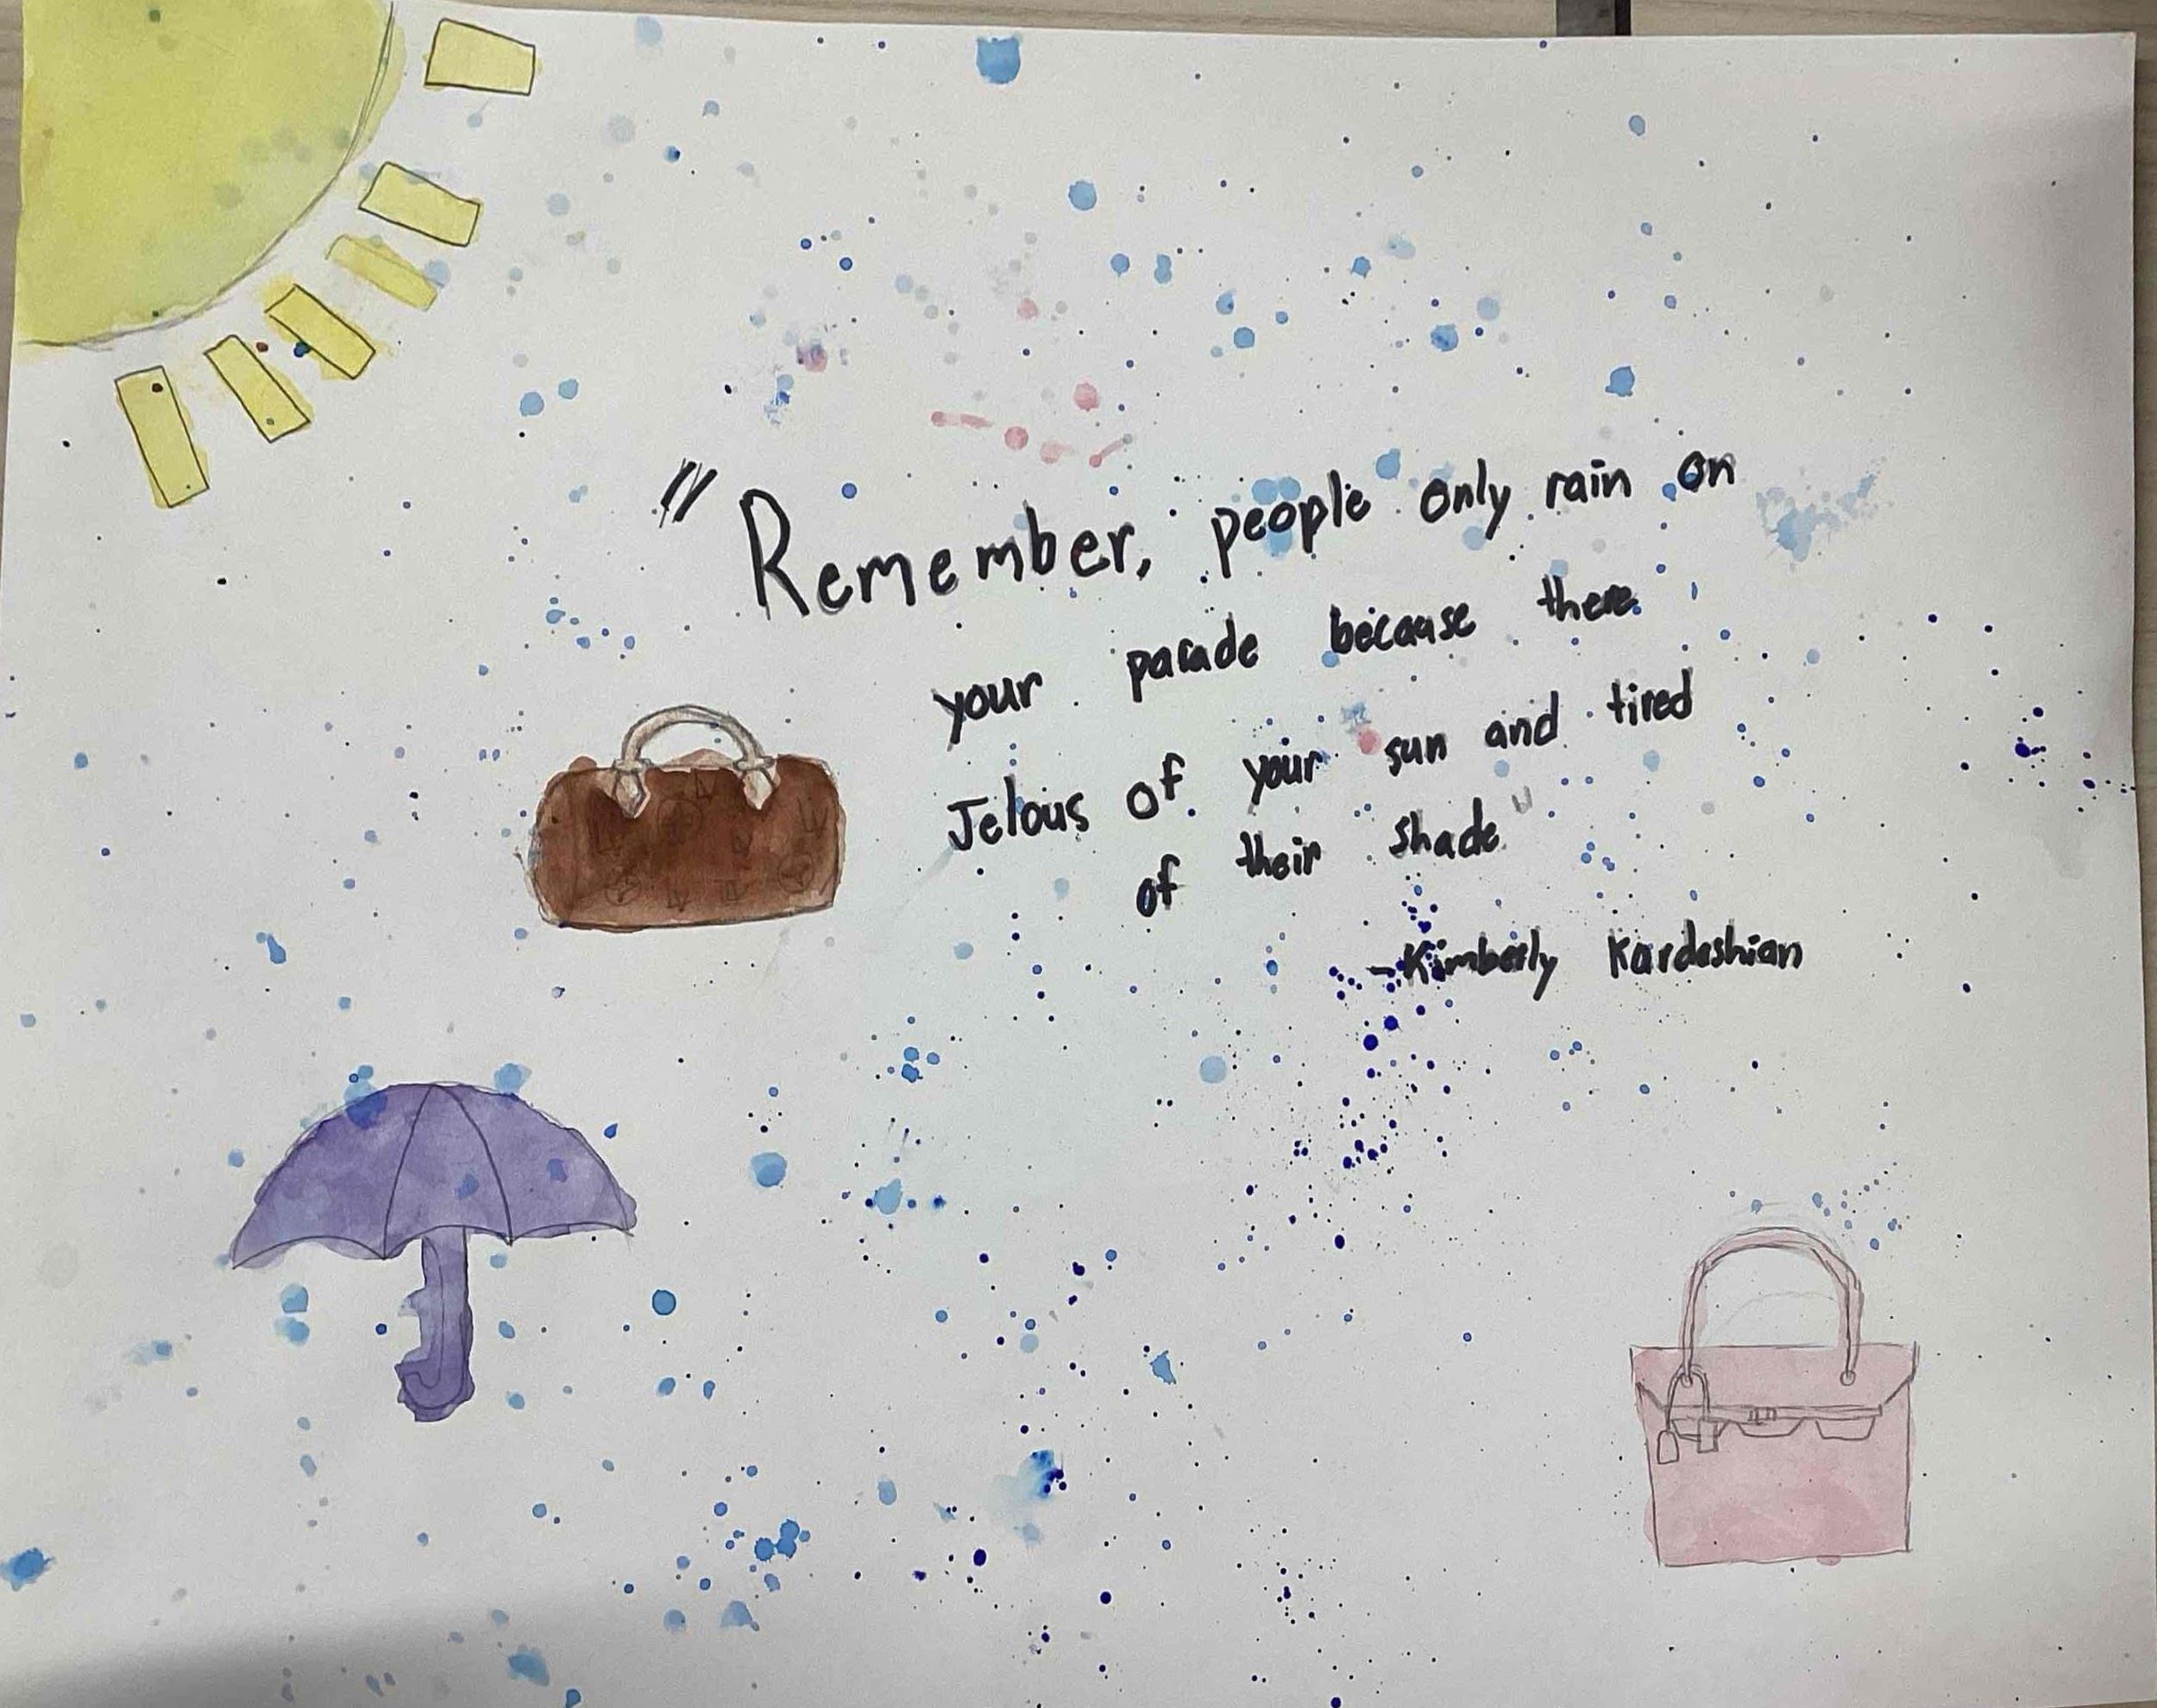 "Remember, people only rain on
your parade because there
Jelous of your sun and tired
of their shade"
-Kimberly Kardashian